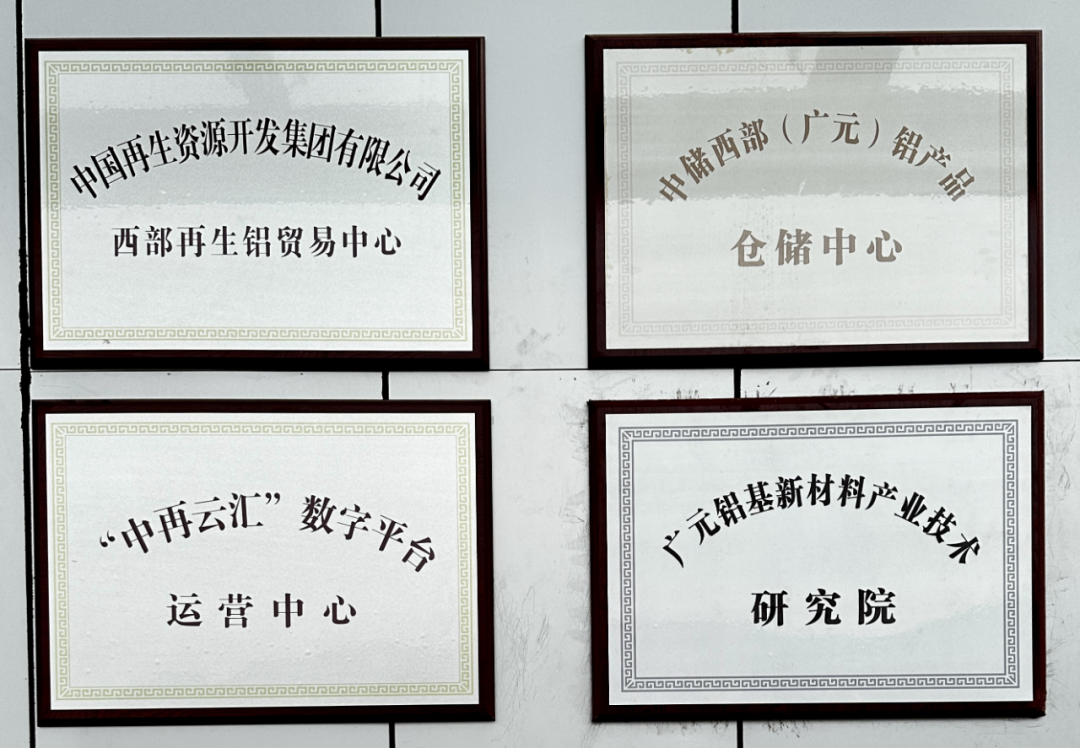 中国再生资源开发集团有限公司
西部再生铝贸易中心
中储西部（广元）铝产品
仓储中心
“中再云汇”数字平台
运营中心
广元铝基新材料产业技术
研究院